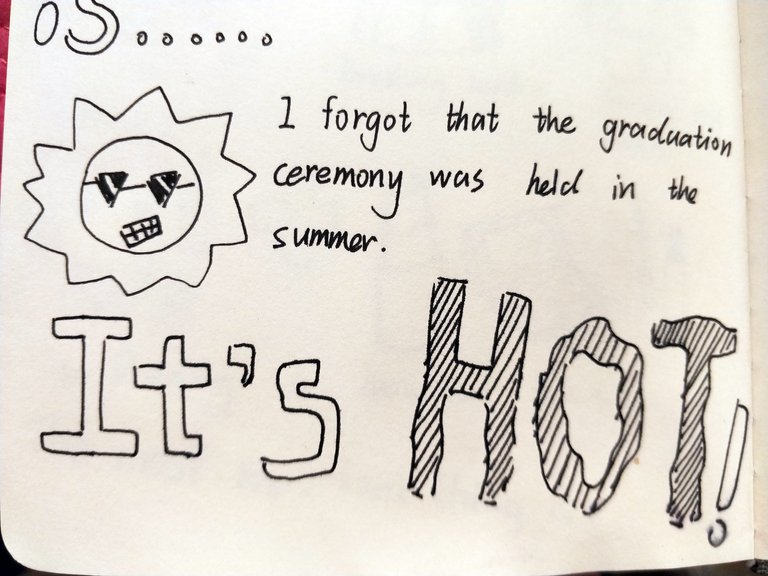 os.......
I forgot that the graduation
ceremony was held in the
summer.
It's HOT!